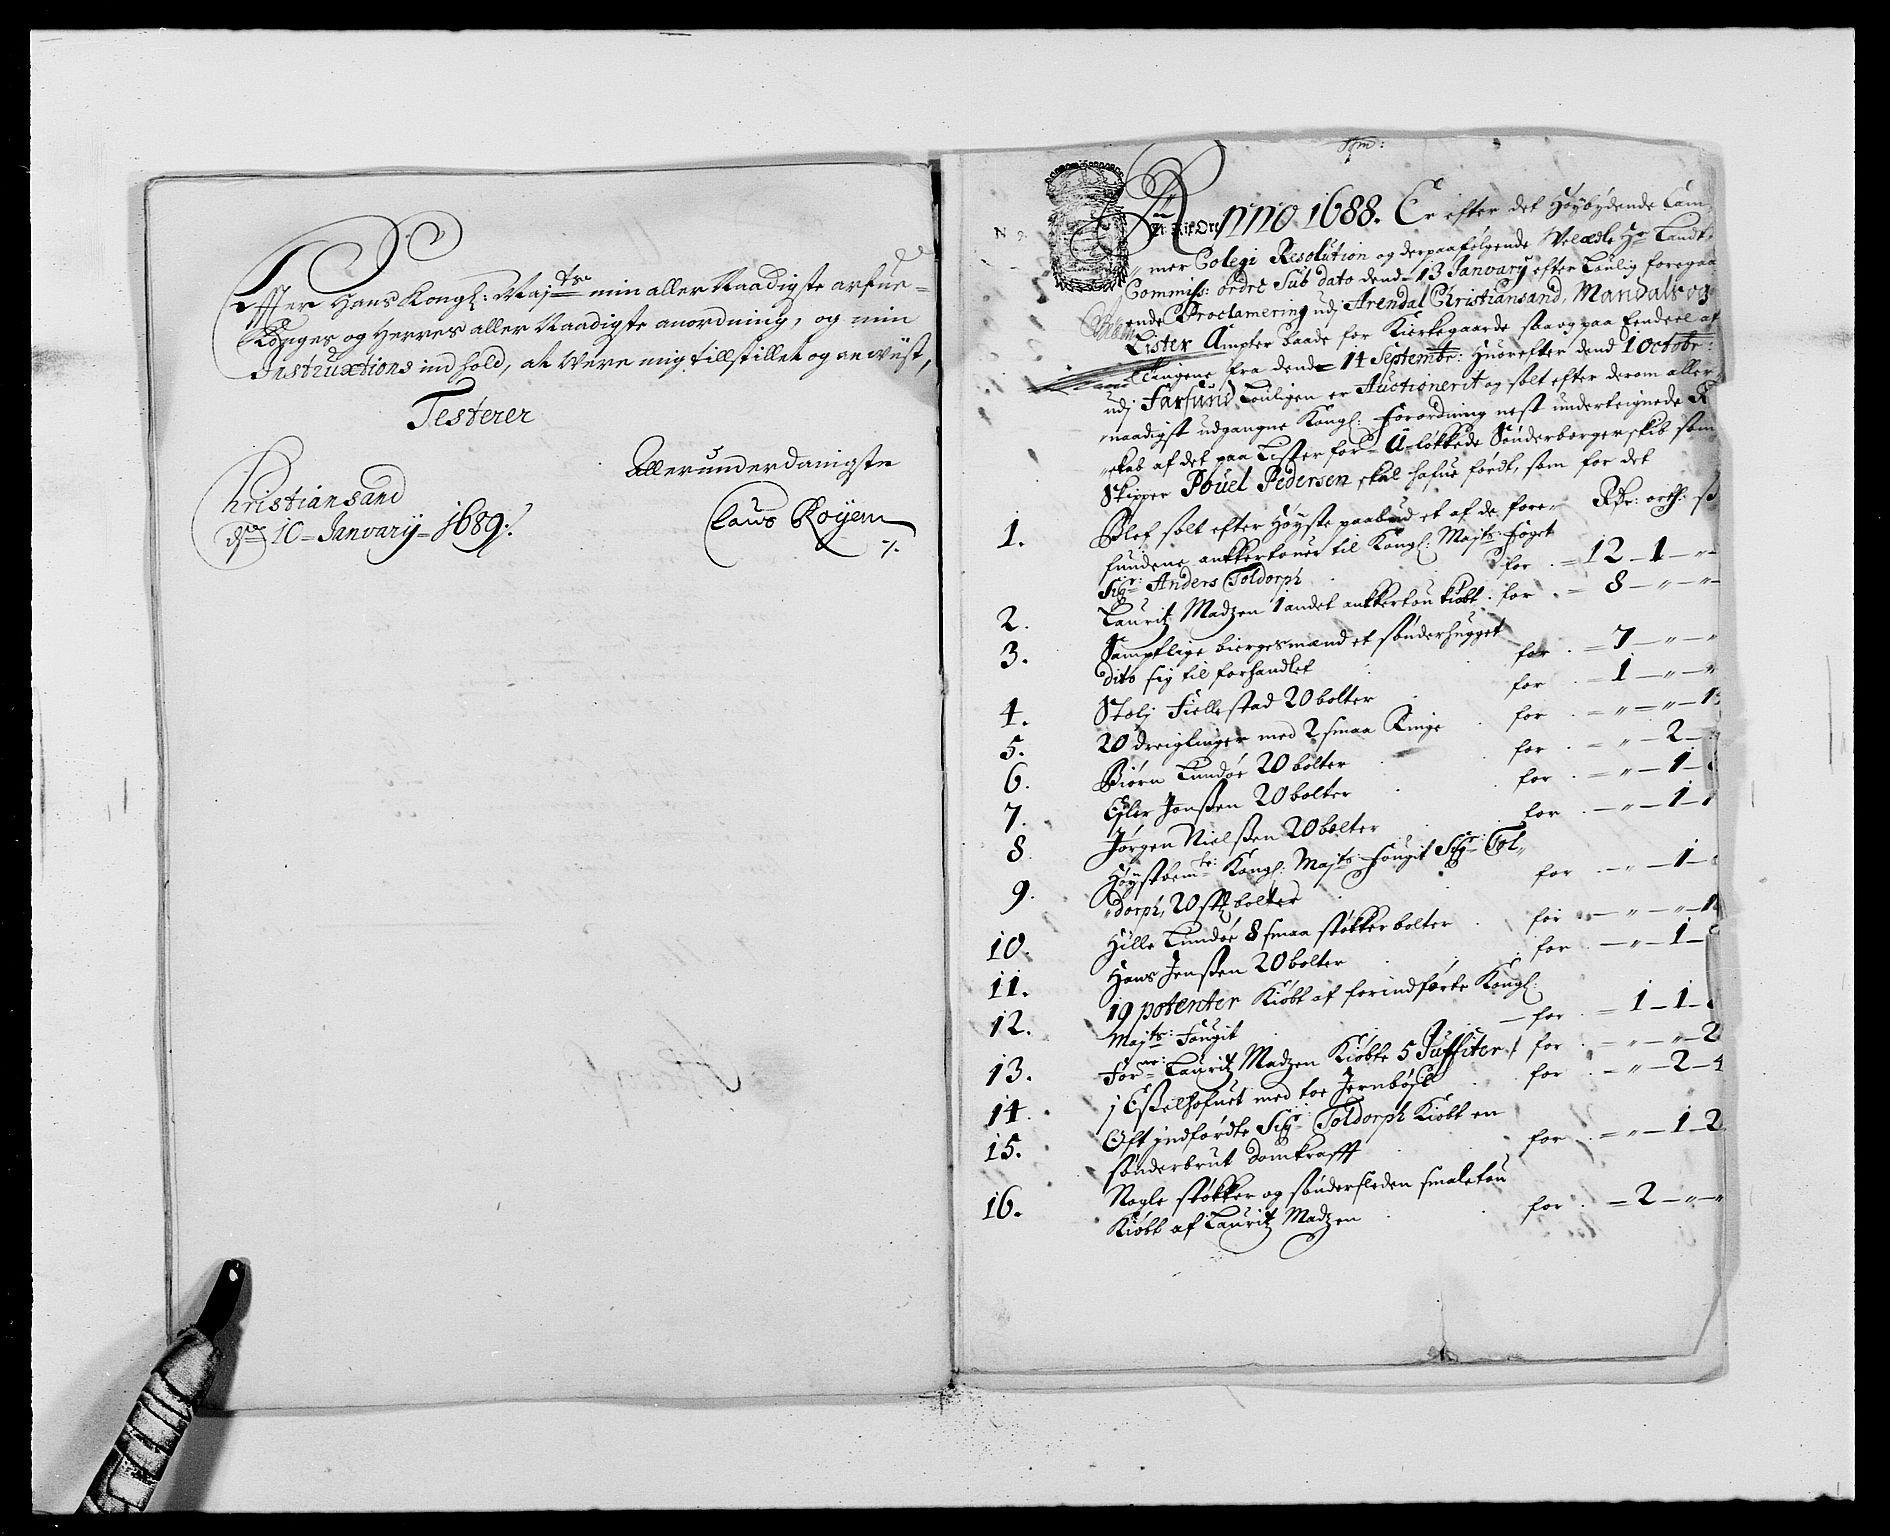 Effter Hans Kongl: Maj:ts min aller Naadigste arfue-
Konges og Herres aller Naadigste anordning, og min
Instruxtions ind hold, at Were mig tillstillet og anwist,
Testerer
Christiansand
dn 10 Janvarij 1689
Allerunderdanigste
Claus Røyem
N 9.
Anno 1688. Er efter det Høybydende Cam
mer Colegi Resolution og derpaafølgende Veledle Hr Landt
Commiss: ordre Sub dato dend 13 Janvarij efter Loulig foregaa
ende Proclamering udj Arendal Christiansand, Mandals og
Lister Ampter baade for Kierkegaarde saa og paa Eendeel af
Tingene fra dend 14 Septembr: Huorefter dend 1 Octobr:
udj Farsund Louligen er Auctionerit og solt efter derom aller
naadigst udgangne Kongl: Forordning nest underteignede R
skab af det paa Lister for U-løkkede Sønderborger skib som
Skipper Pouel Pedersen skal hafueførdt, som for det
Rdr: orth: ß
1. Blef solt efter Høyste paabud et af de fore-
fundene ankkertouer til Kongl: Majts: foget
Sigr: Anders Toldorph for 12 - 1 - "
2. Lauritz Madzen 1 andet ankkertou kiøbt for 8 - " - "
3. Samptlige biergesmænd et sønderhugget
dito sig til forhandlet for 7 - " - "
4. Stoly Fiellestad 20 bolter for 1 - " - "
5. 20 dreiglinger med 2 smaa Ringe for " - " - 1
6. Biørn Lundøe 20 bolter for " - 2 -
7. Efler Jonßen 20 bolter for " - 1 -
8. Jørgen Nielßen 20 bolter for " - 1 -
9. Høystbemte: Kongl: Majts: fougit Sigr Tol-
dorph, 20 sty bolter for " - 1 -
10. Hille Lundøe 8 smaa støkker bolter for " - " - 1
11. Hans Jenßen 20 bolter for " - 1 -
12. 19 potenter Kiøbt af forindførte Kongl:
Majts: Fougit for 1 - 1 -
13. Forne: Lauritz Madzen Kiøbte 5 Puffiter for " - " - 2
14. j Eßelhofuet med toe Jernbøsle for " - 2 - 4
15. Oft jndførdte Sigr: Toldorph Kiøbt en
sønderbrut domkrafft for " - 1 - 2
16. Nogle støkker og sønderfleden smaletou
Kiøbt af Lauritz Madzen for 2 - " - "